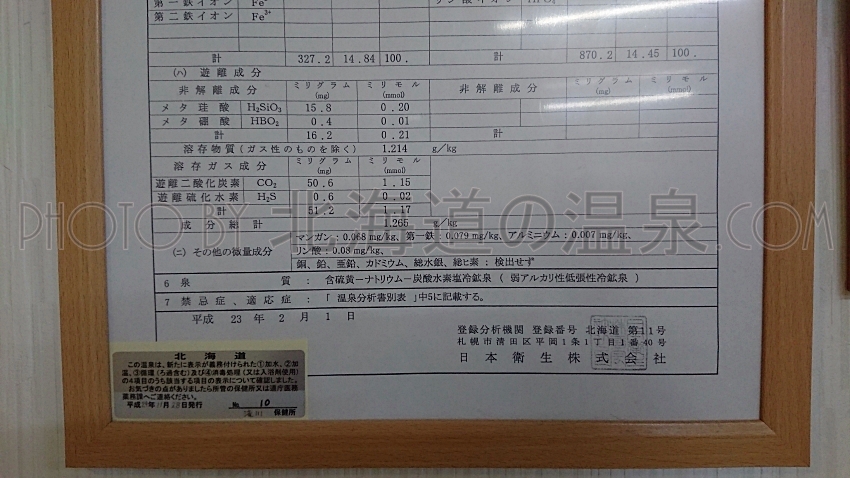 第一鉄イオン Fe2+
第二鉄イオン Fe3+
計 327.2 14.84 100. 計 870.2 14.45 100.
(ハ) 遊離成分
非解離成分 ミリグラム (mg) ミリモル (mmol) 非解離成分 ミリグラム (mg) ミリモル (mmol)
メタ珪酸 H2SiO3 15.8 0.20
メタ硼酸 HBO2 0.4 0.01
計 16.2 0.21 計
溶存物質(ガス性のものを除く) 1.214 g/kg
溶存ガス成分 ミリグラム (mg) ミリモル (mmol)
遊離二酸化炭素 CO2 50.6 1.15
遊離硫化水素 H2S 0.6 0.02
計 51.2 1.17
成分総計 1.265 g/kg
PHOTO BY 北海道の温泉.COM
(ニ) その他の微量成分 マンガン:0.068 mg/kg、第一鉄:0.079 mg/kg、アルミニウム:0.007 mg/kg、
リン酸:0.08 mg/kg、
銅、鉛、亜鉛、カドミウム、総水銀、総ヒ素:検出せず
6 泉質: 含硫黄ーナトリウムー炭酸水素塩冷鉱泉 (弱アルカリ性低張性冷鉱泉)
7 禁忌症、適応症: 「温泉分析書別表」中5に記載する。
平成 23年 2月 1日
登録分析機関 登録番号 北海道 第11号
札幌市清田区平岡1条1丁目1番40号
日本衛生株式会社
北海道
この温泉は、新たに表示が義務付けられた①加水、②加
温、③循環(ろ過含む)及び④消毒処理(又は入浴剤使用)
の4項目のうち該当する項目の表示について確認しました。
お気づきの点がありましたら所管の保健所又は道庁医務
薬務課へご連絡ください。
平成 年11月28日発行 No 10
保健所